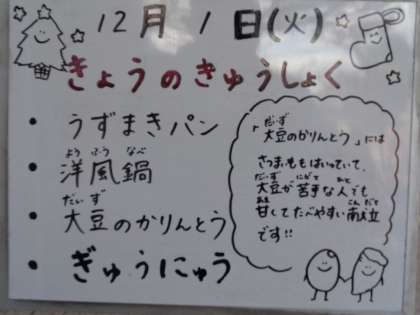 12月1日(火)
きょうのきゅうしょく
・うずまきパン
・洋風鍋
・大豆のかりんとう
・ぎゅうにゅう
「大豆のかりんとう」には
さつまいももはいっていて、
大豆が苦手な人でも
甘くてたべやすい献立
です!!